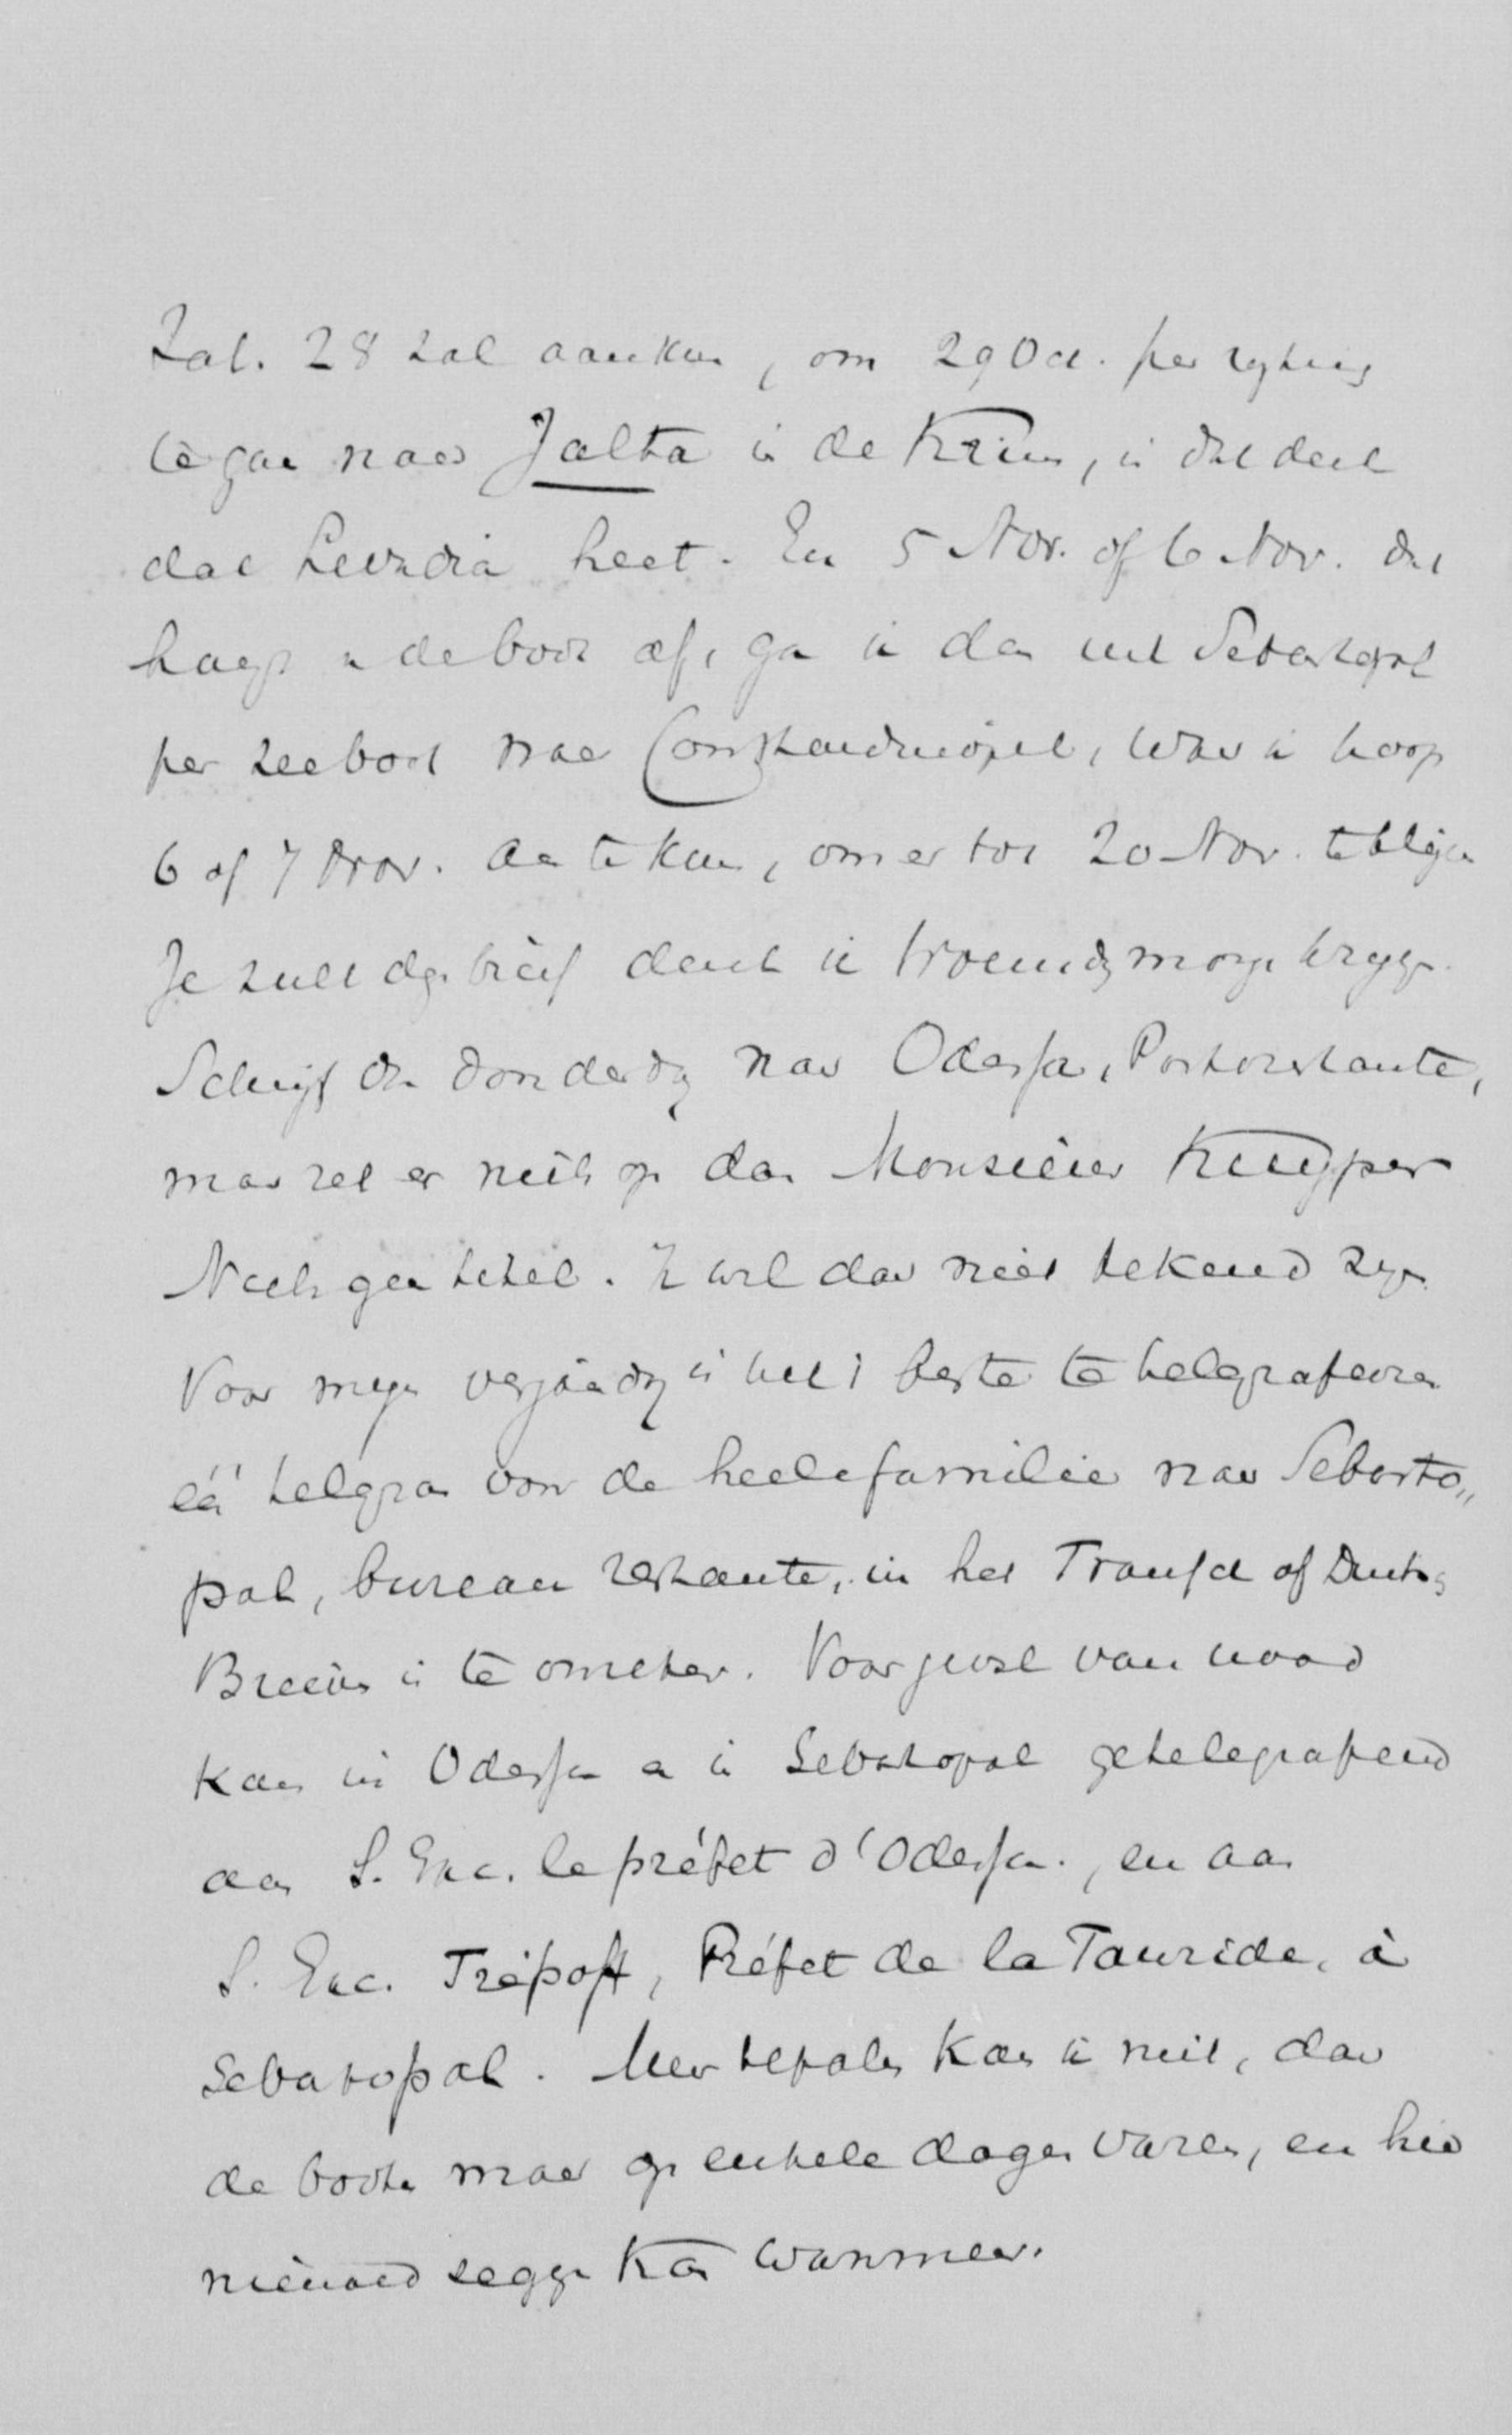 Zat. 28 zal aankomen, om 29 Oct. per rijtuig
te gaan naar Jalta in de Krim, in dat deel
dat Livadia heet. En 5 Nov. of 6 Nov. dat
hangt v. de boot af, ga ik dan uit Sebastopol
per zeeboot naar Constantinopel, waar ik hoop
6 of 7 Nov. aan te komen, om er tot 20 Nov. te blijven
Je zult dezen brief denk ik woensdagmorgen krijgen.
Schrijf dan donderdag naar Odessa, Poste restante,
maar zet er niets op dan Monsieur Kuyper
Niets geen titel. Ik wil daar niet bekend zijn.
Voor mijn verjaardag is het 't beste te telegrafeeren
één telegram voor de heele familie naar Sebasto„
pol, bureau restante, in het Fransch of Duitsch
Brieven is te onzeker. Voor geval van nood
kan in Odessa en in Sebastopol getelegrafeerd
aan S. Exc. le préfet d'Odessa., en aan
S. Exc. Trépoff, Préfet de la Tauride, à
Sebastopol. Meer bepalen kan ik niet, daar
de booten maar op enkele dagen varen, en hier
niemand zeggen kan wanneer.